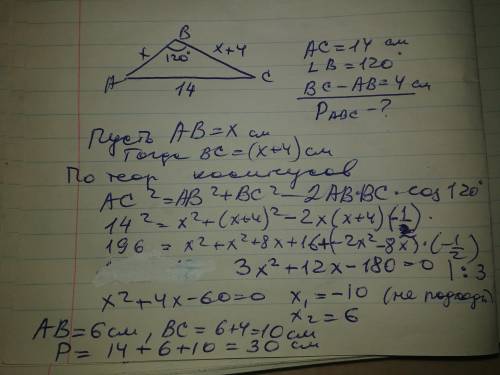 B
x
x+4
120°
A
C
14
AC=14 см
∠B=120°
BC-AB=4 см
P ABC-?
Пусть AB=x см
Тогда BC=(x+4)см
По теор косинусов
AC²=AB²+BC²-2AB·BC·cos120°
14²=x²+(x+4)²-2x(x+4)(-1/2)
196=x²+x²+8x+16+(-2x²-8x)·(-1/2)
3x²+12x-180=0 |:3
x²+4x-60=0 x₁=-10 (не подходи)
x₂=6
AB=6см, BC=6+4=10см
P=14+6+10=30 см